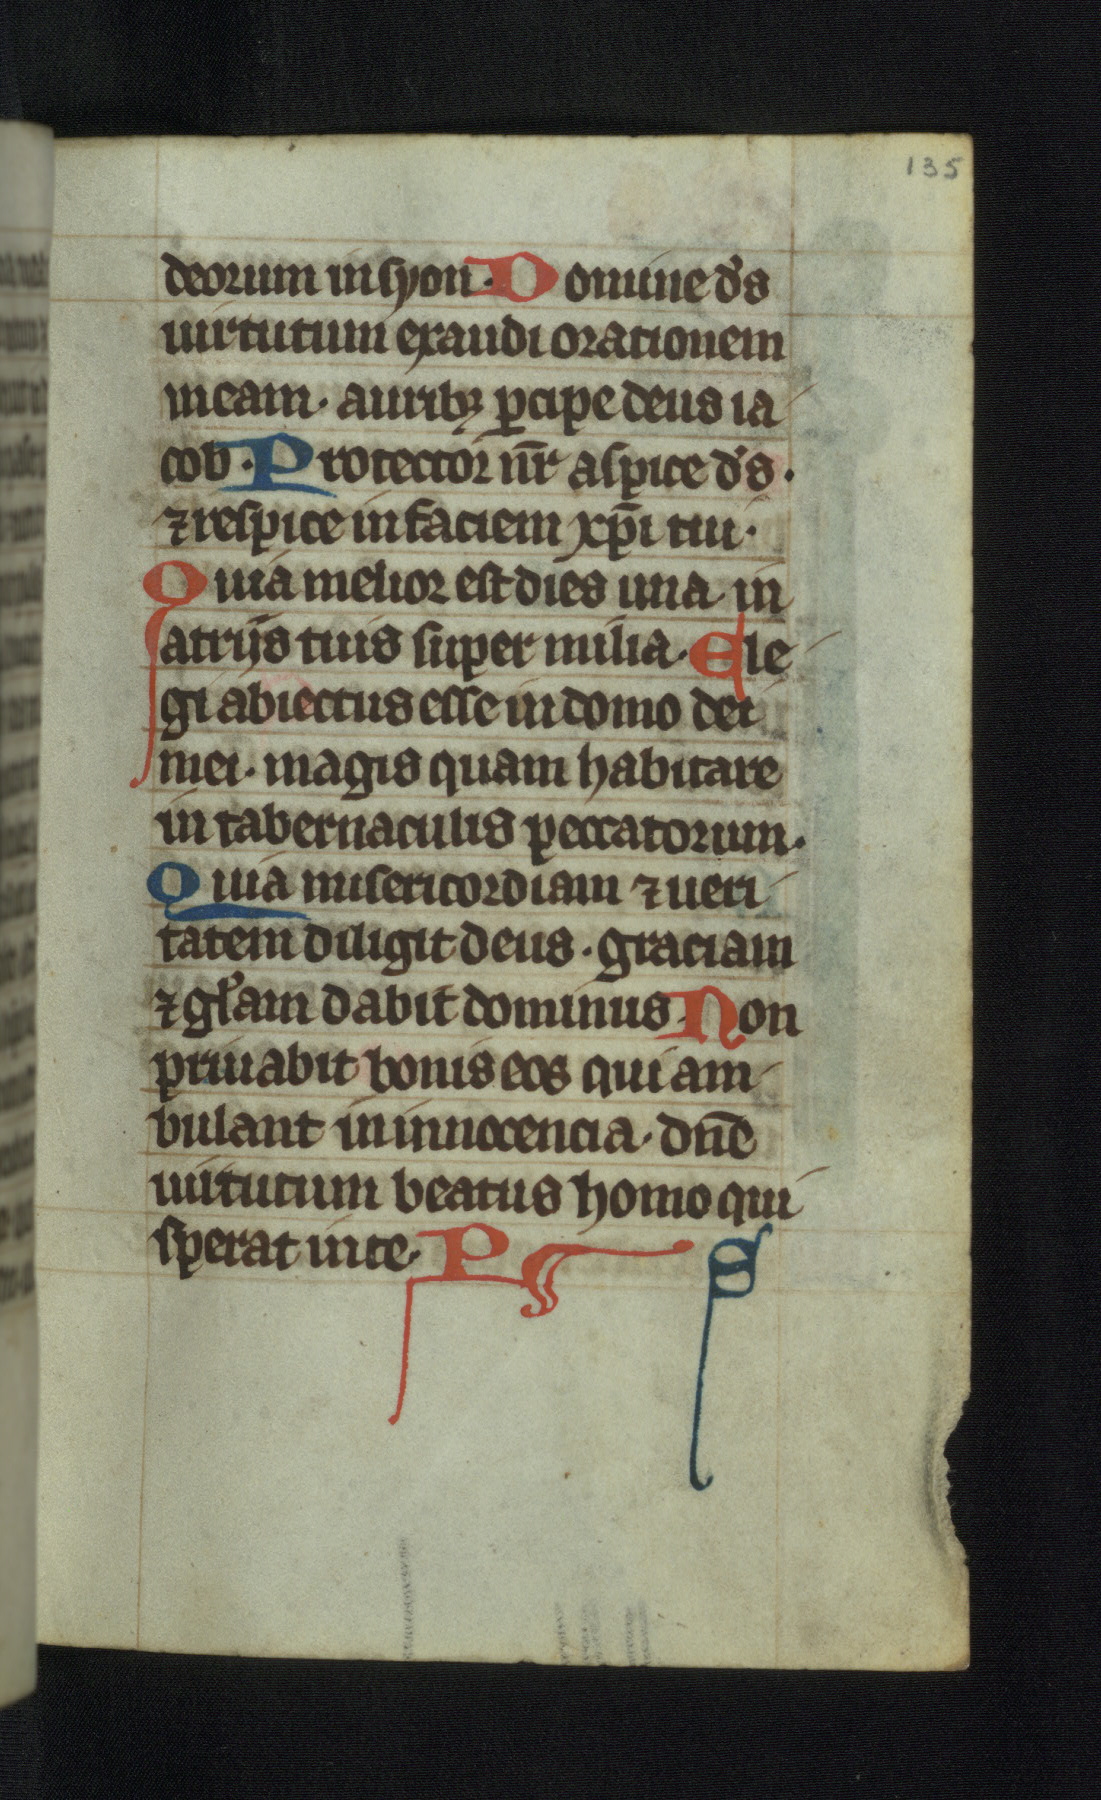 135
deorum in syon · Domine d's
uirtutum exaudi orationem
meam · auribꝫ ꝑcipe deus ia
cob · Protector nr̄ aspice d's ·
⁊ respice in faciem xp̄i tui ·
Quia melior est dies una in
atrijs tuis super milia · Ele
gi abiectus esse in domo dei
mei · magis quam habitare
in tabernaculis peccatorum ·
Quia misericordiam ⁊ ueri
tatem diligit deus · graciam
⁊ gl'am dabit dominus Non
priuabit bonis eos qui am
bulant in innocencia · dn̄e
uirtutum beatus homo qui
sperat in te · P S